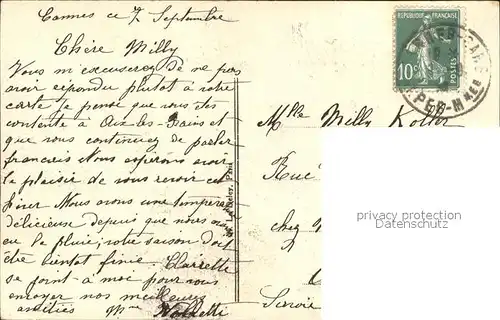 Cannes ce 7 Septembre
Chère Milly
Vous m'excuserez de ne pas
avoir répondu plutôt à votre
carte je pense que vous êtes
contente à Aix-les-Bains et
que vous continuez de parler
français Nous espérons avoir
le plaisir de vous revoir cet
hiver Nous avons une tempéra
délicieuse depuis que nous avons
eu la pluie, votre saison doit
être bientôt finie Clarette
se joint à moi pour vous
envoyer nos meilleures
amitiés Mme
REPUBLIQUE FRANÇAISE
10c
POSTES
Mlle Milly Koller
Rue
chez
Savoie
privacy protection
Datenschutz